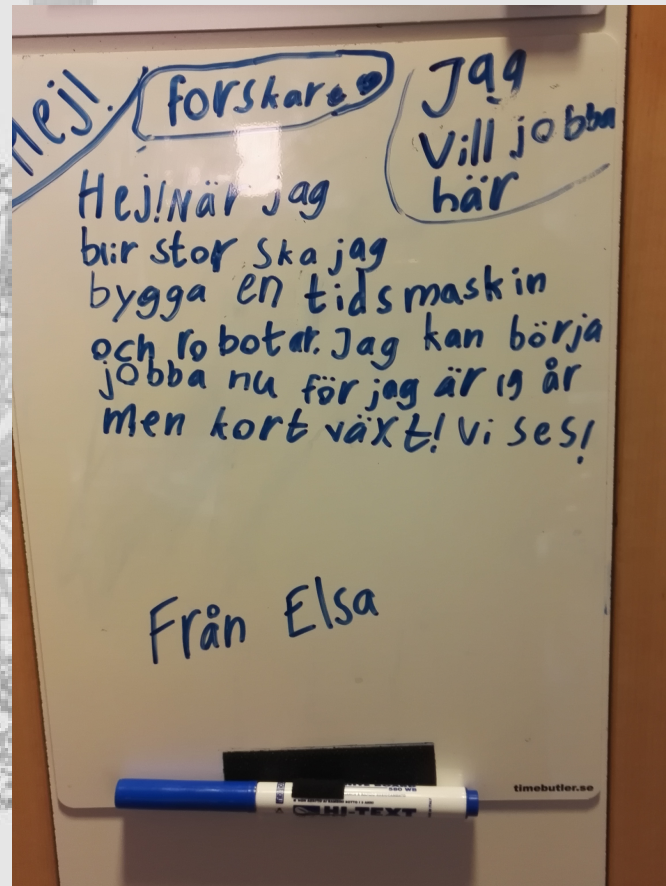 Hej!
forskare
Jag
vill jobba
här
Hej! när jag
blir stor ska jag
bygga en tidsmaskin
och robotar. Jag kan börja
jobba nu för jag är 19 år
men kort växt! Vi ses!
Från Elsa
timebutler.se
HI-TEXT